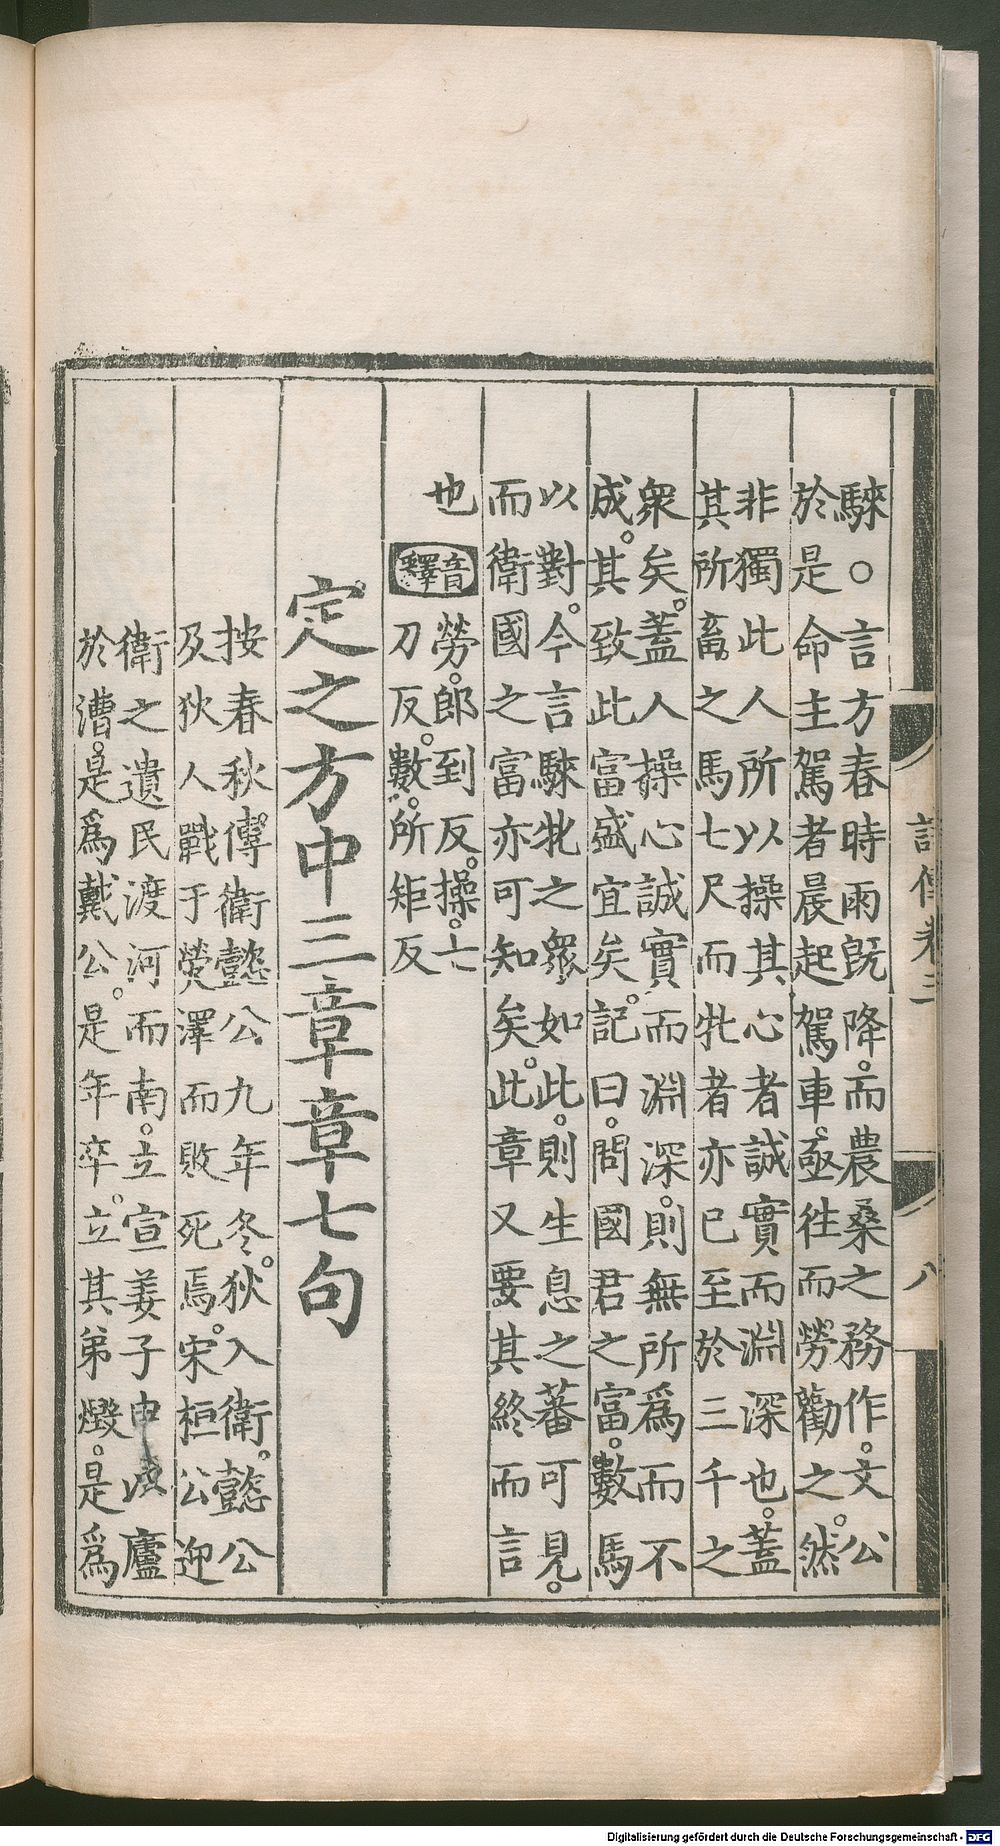 騋○言方春時雨旣降而農桑之務作文公
於是命主駕者晨起駕車亟往而勞勸之然
非獨此人所以操其心者誠實而淵深也蓋
其所畜之馬七尺而牝者亦已至於三千之
衆矣蓋人操心誠實而淵深則無所爲而不
成其致此富盛宜矣記曰問國君之富數馬
以對今言騋牝之衆如此則生息之蕃可見
而衛國之富亦可知矣此章又要其終而言
也
音釋
勞郎到反操七
刀反數所矩反
定之方中三章章七句
按春秋傳衛懿公九年冬狄入衛懿公
及狄人戰于熒澤而敗死焉宋桓公迎
衛之遺民渡河而南立宣姜子申以廬
於漕是爲戴公是年卒立其弟燬是爲
詩傳卷三
八
Digitalisierung gefördert durch die Deutsche Forschungsgemeinschaft - DFG